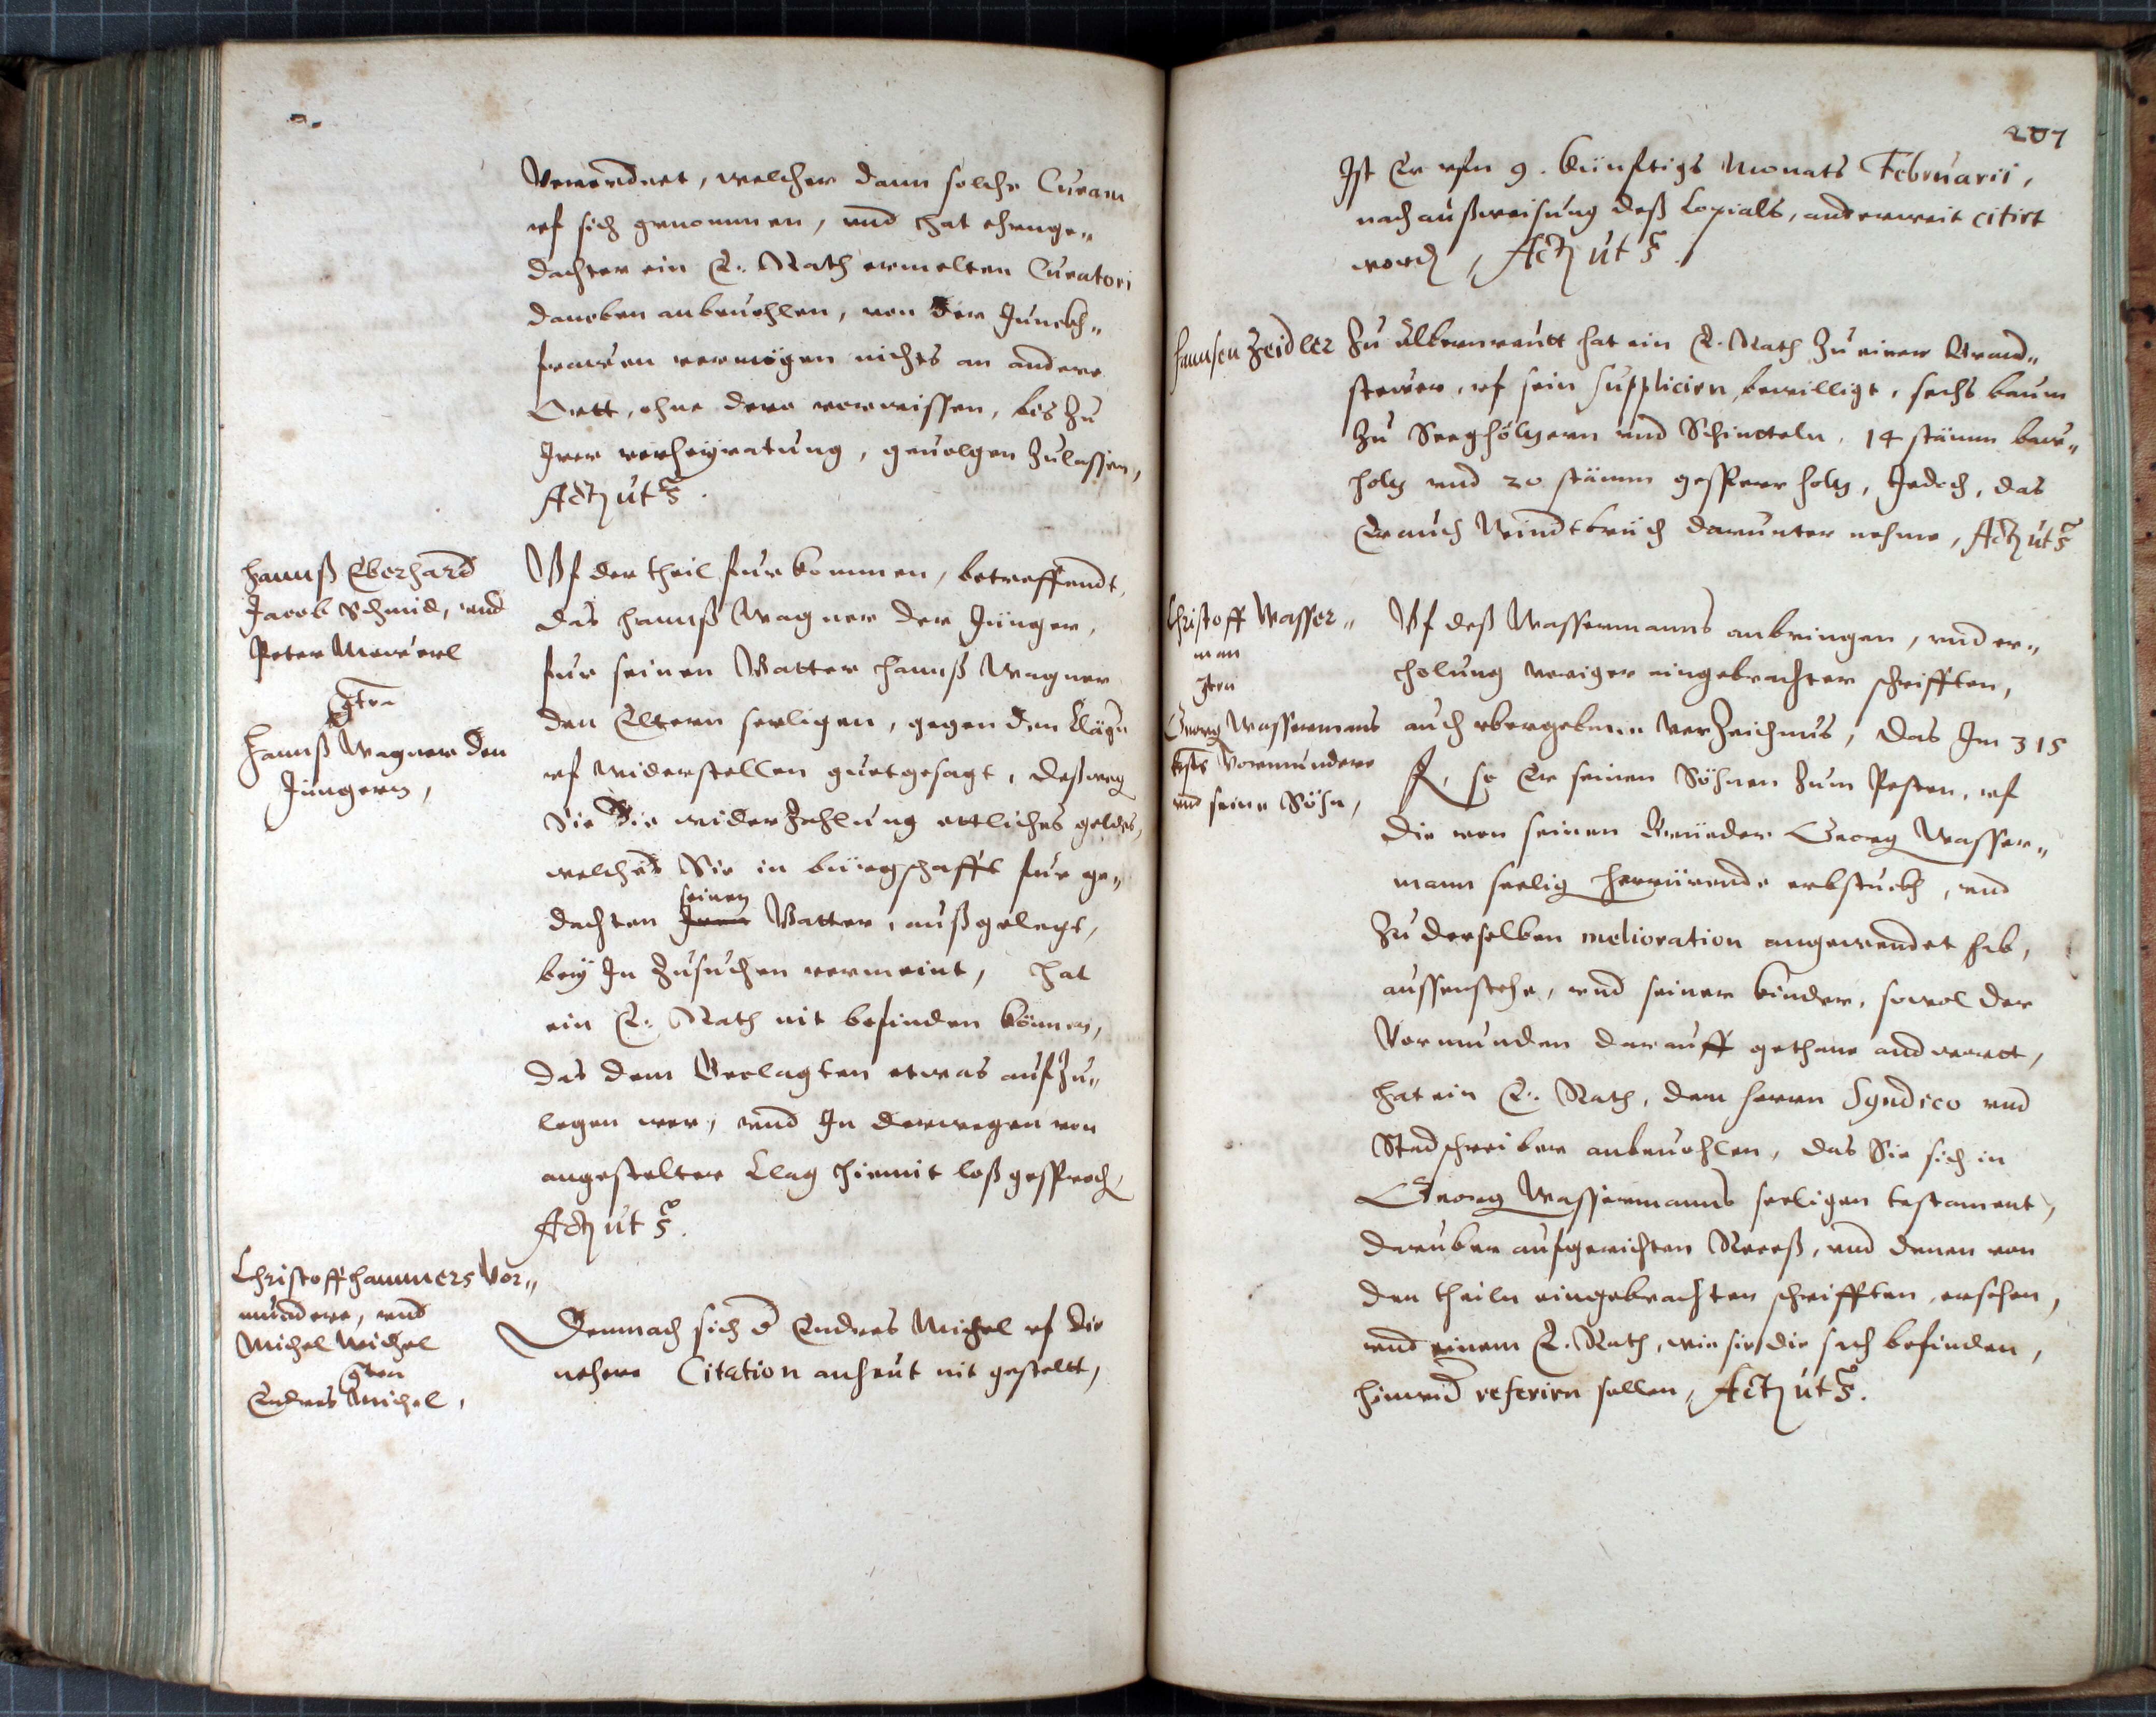 Verordnet, welcher dann solche Curam
uf sich genommen, und hat ehrnge„
dachter ein E. Rath ermelten Curatori
daneben anbevohlen, von der Junckh„
frawen vermögen nichts an andere
Ortt, ohne dero vorwissen, bis zu
Irer verheyratung, gevolgen zulassen,
Actum ut s.
Hannß Eberhard
Jacob Schmid, und
Peter
Contra
Hannß Wagner den
Jüngern,
Uf der theil fürkommen, betreffendt,
das Hannß Wagner der Jünger,
für seinen Vatter Hannß Wagner
den Eltern seeligen, gegen den Clägern
uf widerstellen guetgesagt, deßweg
Sie die widerzahlung ettliches geldes,
welches Sie in bürgschafft für ge„
dachten Iren seinen Vatter, außgelegt,
bey In zusuchen vermeint, hat
ein E. Rath nit befinden können,
das dem Beclagten etwas aufzu„
legen wer, und In derwegen von
angestelter Clag hiemit loßgesproch
Actum ut s.
Christoff Hammers Vor„
mundere, und
Michel Michel
Contra
Endres Michel,
Demnach sich d Endres Michel uf die
nehere Citation anheut nit gestellt,
207
Ist Er ufn 9. künftigs Monats Februarii,
nach außweisung deß Copials, anderweit citirt
word, Actum ut s.
Hannsen Zeidler
zu Albernreutt hat ein E. Rath zu einer Brand„
stewer, uf sein supplicirn, bewilligt, sechs baum
zu Seeghöltzern und Schindteln, 14 stämm baw„
holtz und 20 stämm gesperrholtz, Jedoch, das
Er auch Windtbrüch darunter nehme, Actum ut s
Christoff Wasser„
man
Contra
Georg Wassermans
Vormundere
und seine Söhn,
Uf deß Wassermanns anbringen, und er„
holung voriger eingebrachter schrifften,
auch ubergebenen Verzeichnus, das Im 315
fl, so Er seinen Söhnen zum Pesten, uf
die von seinen Brüeder Georg Wasser„
mann seelig herrürende erbstuckh, und
zu derselben melioration angewendet hab,
aussenstehe, und seiner kinder, sowol der
Vormunden darauff gethane andwortt,
hat ein E. Rath, dem Herrn Syndico und
Stadschreiber anbevohlen, das Sie sich in
Georg Wassermanns seeligen testament,
daruber aufgerichten Receß, und denen von
den theiln eingebrachten schrifften, ersehen,
und einem E. Rath, wie sie die sach befinden,
hinwid referirn sollen, Actum ut s.